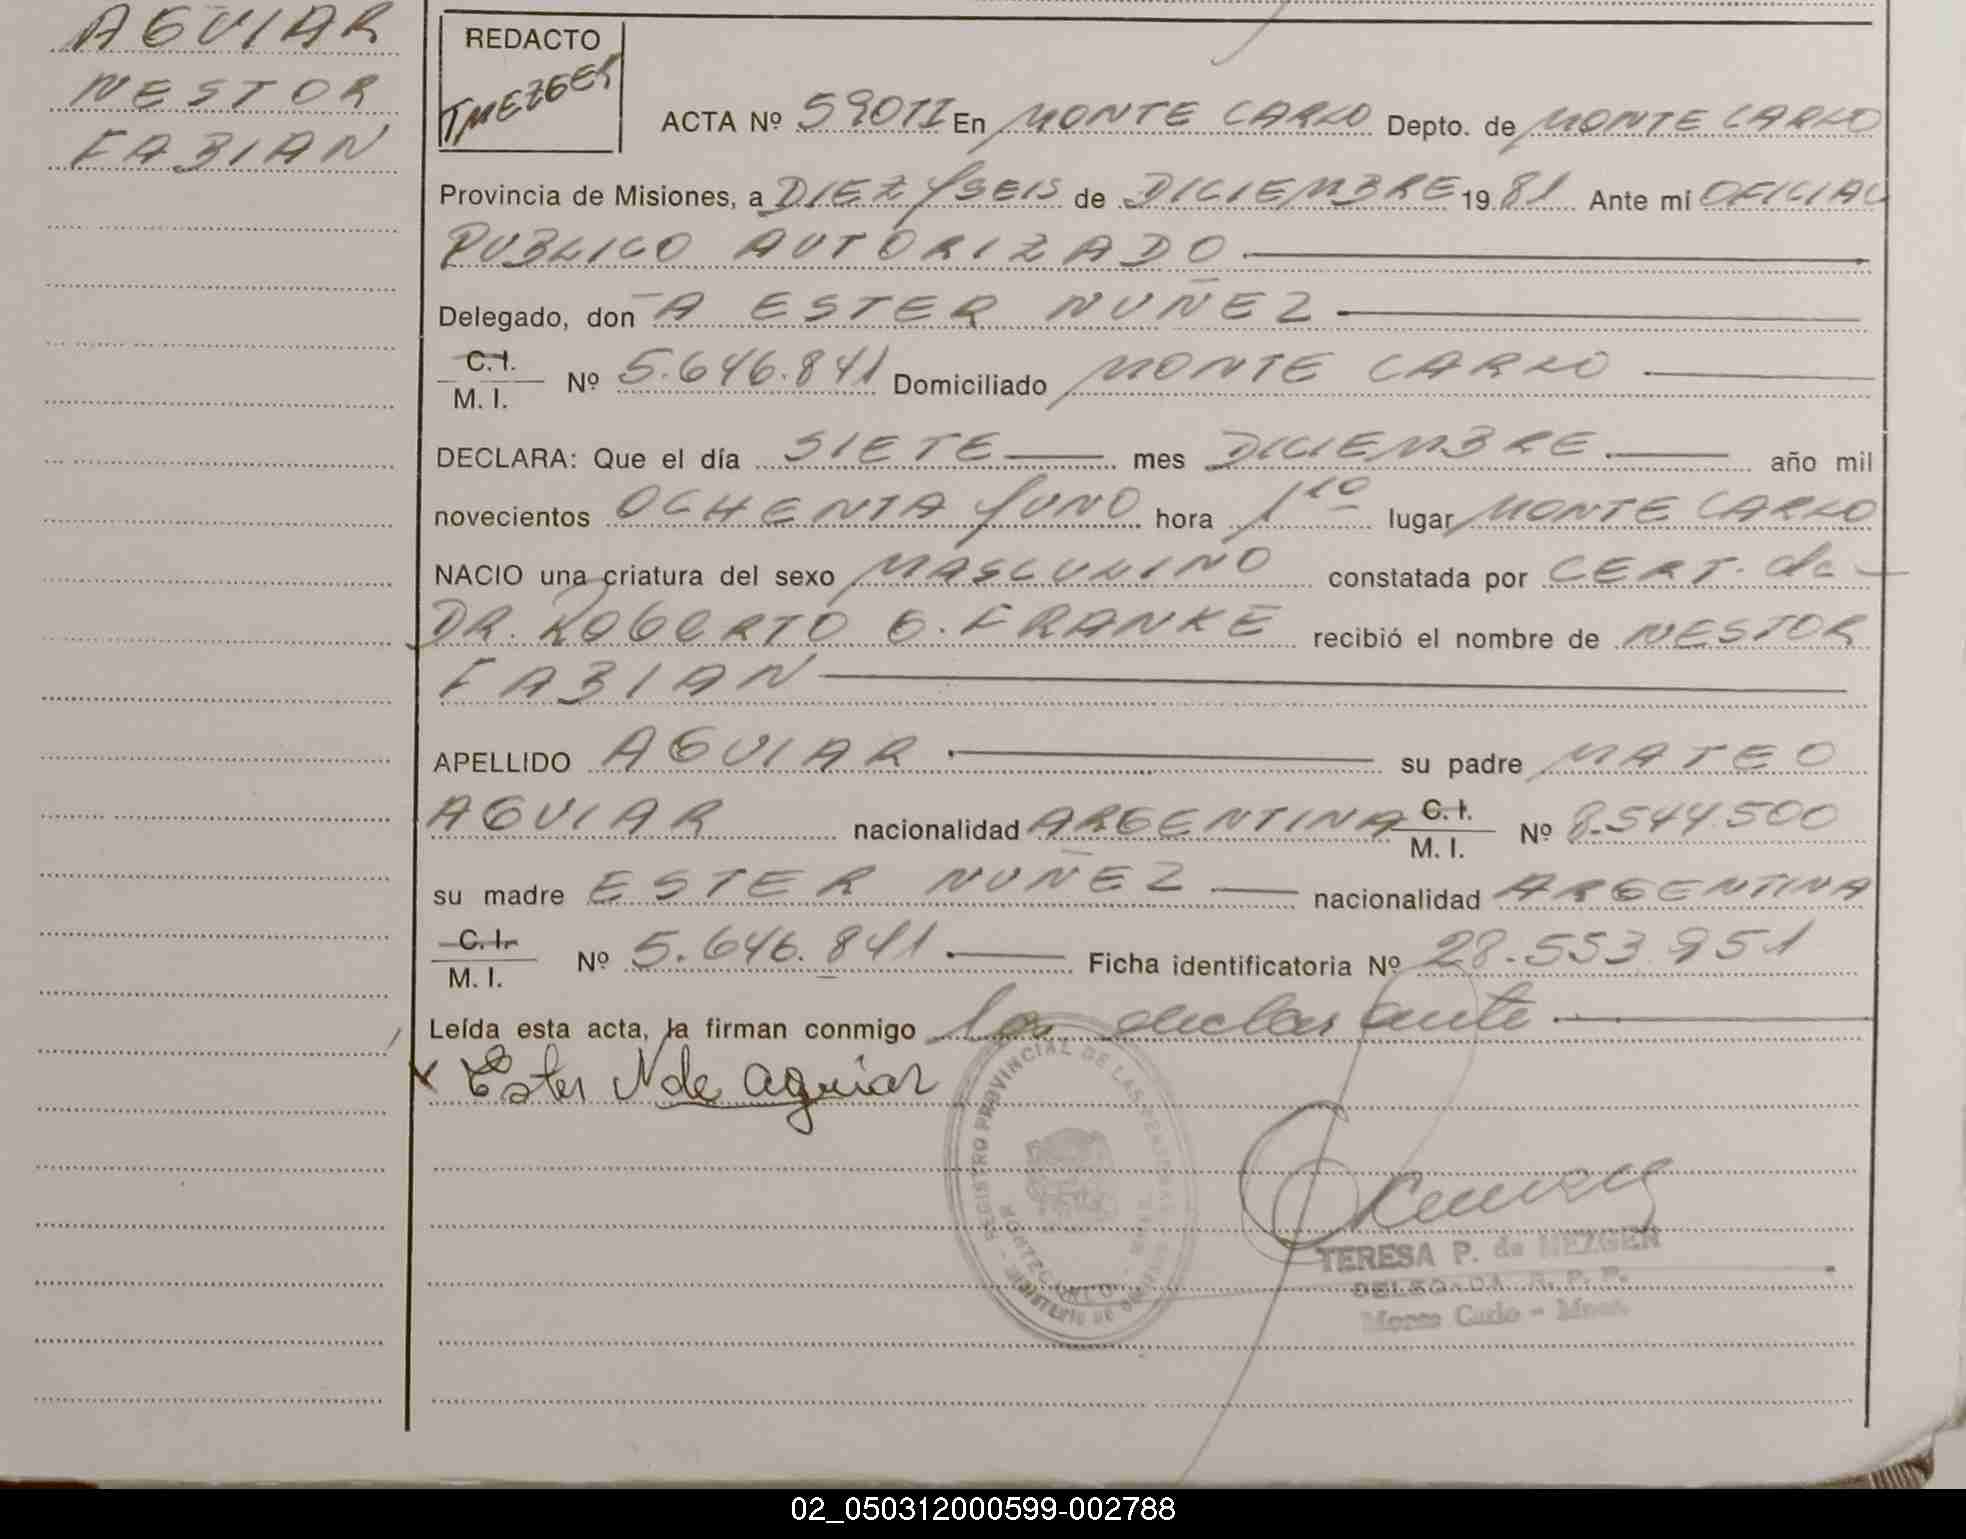 AGUIAR
NESTOR
FABIAN
REDACTO
TMEZGER
ACTA Nº 590TI En MONTE CARLO Depto. de MONTE CARLO
Provincia de Misiones, a DIEZ y SEIS de DICIEMBRE 1981 Ante mi OFICIAL
PUBLICO AUTORIZADO
Delegado, don A ESTER NUÑEZ
C.I. M.I. Nº 5.646.841 Domiciliado MONTE CARLO
DECLARA: Que el día SIETE mes DICIEMBRE año mil
novecientos OCHENTA y UNO hora 1 10 lugar MONTE CARLO
NACIO una criatura del sexo MASCULINO constatada por CERT. de
DR. ROBERTO O. FRANKE recibió el nombre de NESTOR
FABIAN
APELLIDO AGUIAR su padre MATEO
AGUIAR nacionalidad ARGENTINA C.I. M.I. Nº 8.544.500
su madre ESTER NUÑEZ nacionalidad ARGENTINA
C.I. M.I. Nº 5.646.841 Ficha identificatoria Nº 28.553.951
Leída esta acta, la firman conmigo la declarante
x Ester N de aguiar
REGISTRO PROVINCIAL DE LAS PERSONAS
MONTE CARLO
MINISTERIO DE
TERESA P. de MEZGER
DELEGADA R. P. P.
Monte Carlo - Mnes.
02_050312000599-002788